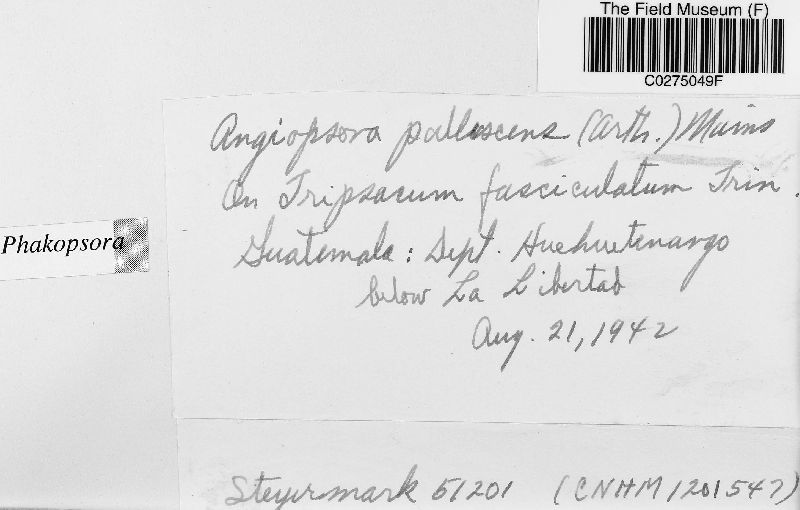 The Field Museum (F)
C0275049F
Angiopsora pallescens (Arth.) Mains
On Tripsacum fasciculatum Trin.
Phakopsora
Guatemala: Dept. Huehuetenango
below La Libertad
Aug. 21, 1942
Steyermark 51201 (CNHM 1201547)